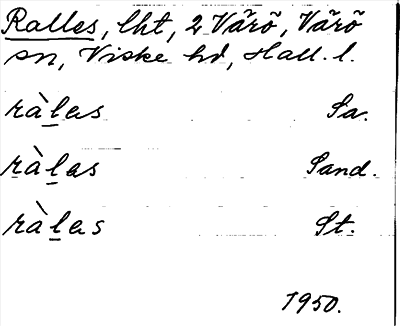 Ralles, lht, 2 Värö, Värö
sn, Viske hd, Hall. l.
ràl̲as Sa.
r̲àl̲as Sand.
ràl̲as St.
1950.